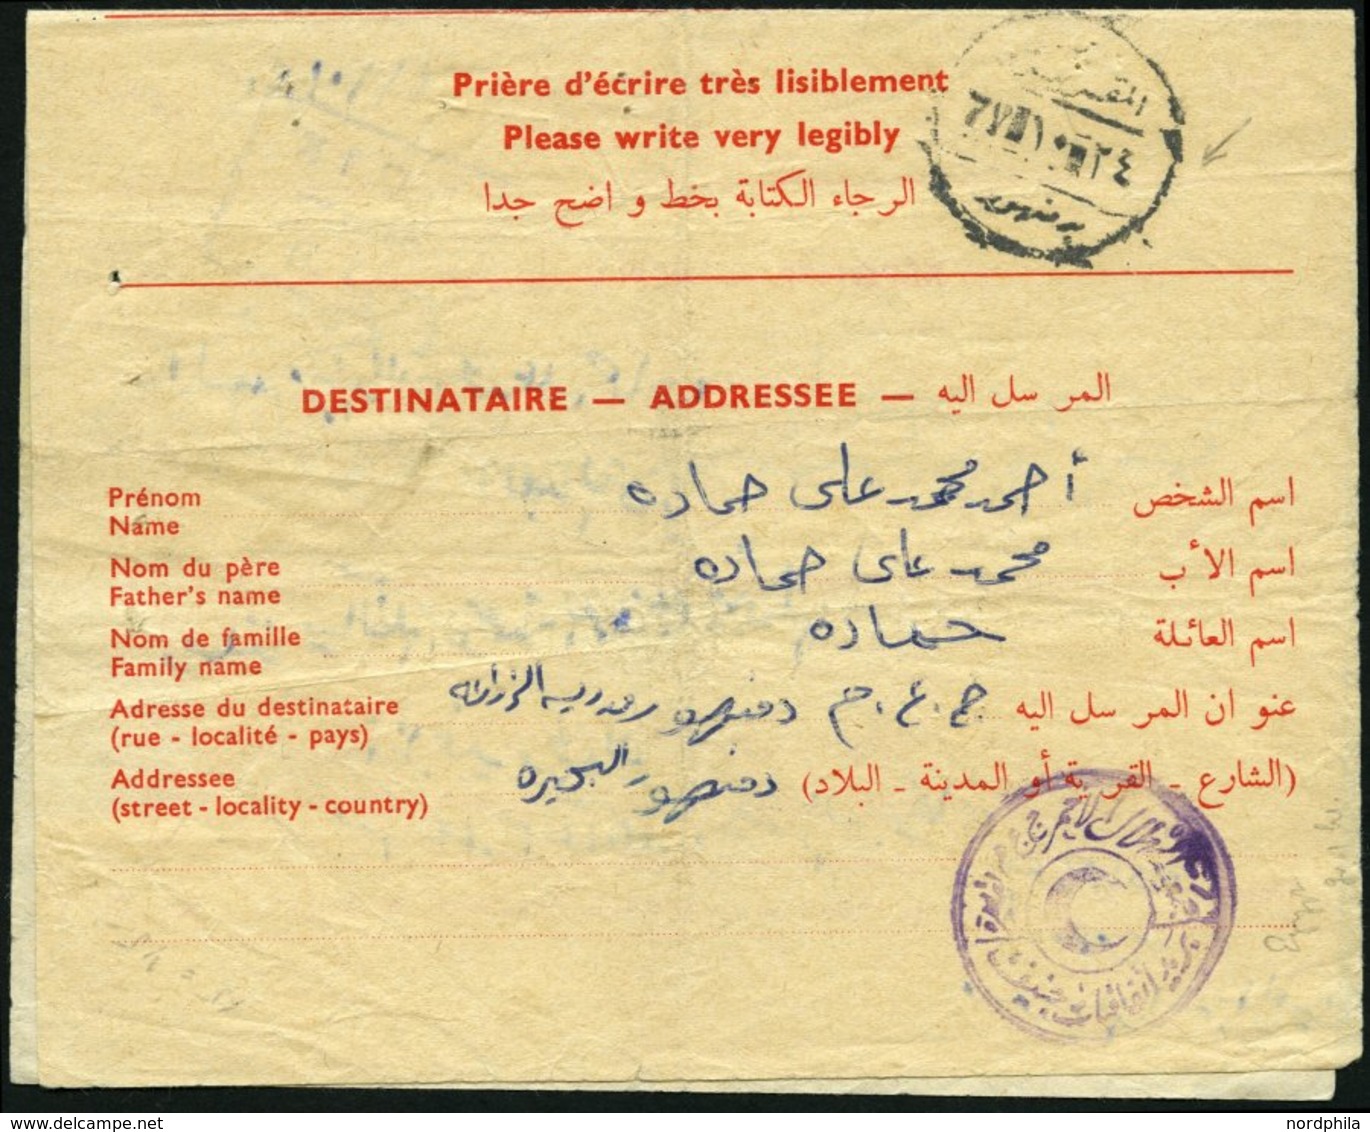 Prière d'écrire très lisiblement
Please write very legibly
الرجاء الكتابة بخط واضح جدا
دمنهور
DESTINATAIRE — ADDRESSEE — المرسل اليه
Prénom
Name
أحمد محمد على حماده
اسم الشخص
Nom du père
Father's name
محمد على حماده
اسم الأب
Nom de famille
Family name
حماده
اسم العائلة
Adresse du destinataire
(rue - localité - pays)
ج.ع.م دمنهور
عنوان المرسل اليه
Addressee
(street - locality - country)
دمنهور البحيرة
(الشارع - القرية أو المدينة - البلاد)
بريد اتفاقيات جنيف
nordphila